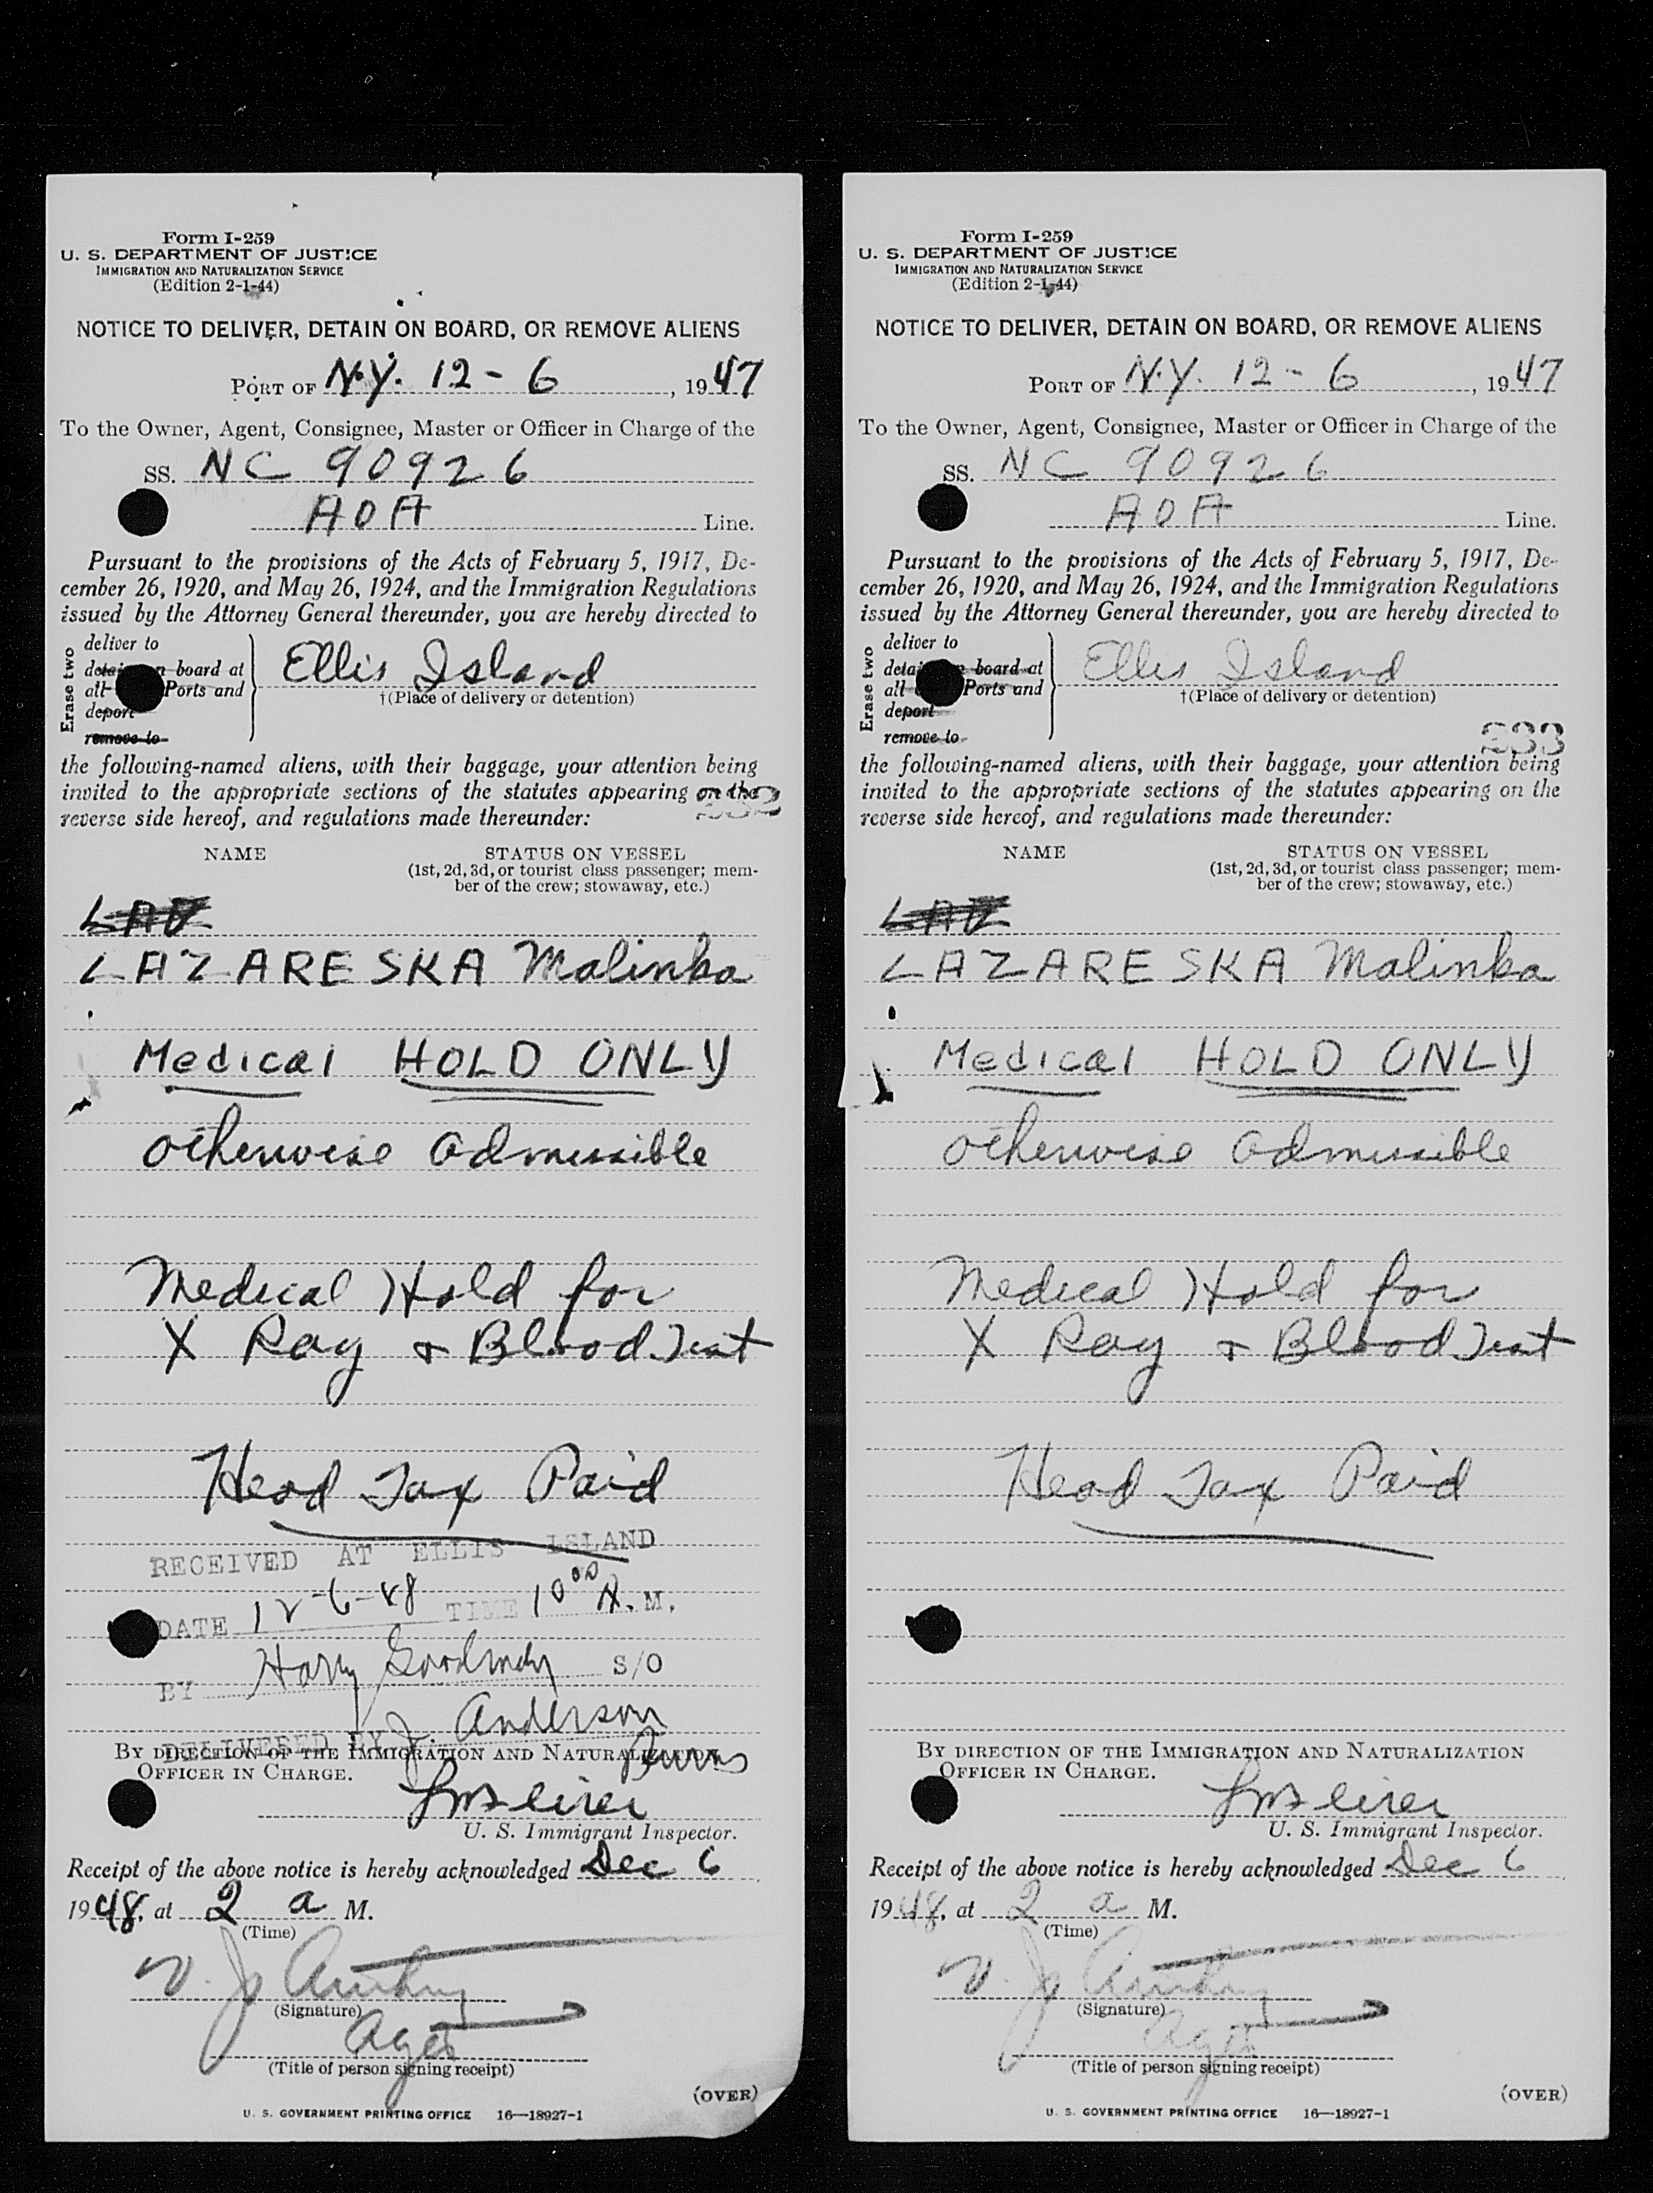 Form I-259
U. S. DEPARTMENT OF JUSTICE
IMMIGRATION AND NATURALIZATION SERVICE
(Edition 2-1-44)
NOTICE TO DELIVER, DETAIN ON BOARD, OR REMOVE ALIENS
PORT OF N.Y. 12-6, 1947
To the Owner, Agent, Consignee, Master or Officer in Charge of the
SS. NC 90926
AOA Line.
Pursuant to the provisions of the Acts of February 5, 1917, De-
cember 26, 1920, and May 26, 1924, and the Immigration Regulations
issued by the Attorney General thereunder, you are hereby directed to
Erase two
deliver to
board at
all Ports and
deport
remove to
Ellis Island
†(Place of delivery or detention)
the following-named aliens, with their baggage, your attention being
invited to the appropriate sections of the statutes appearing on the
232
reverse side hereof, and regulations made thereunder:
NAME STATUS ON VESSEL
(1st, 2d, 3d, or tourist class passenger; mem-
ber of the crew; stowaway, etc.)
LAZARESKA Malinka
Medical HOLD ONLY
otherwise admissible
Medical Hold for
X Ray & Blood Test
Head Tax Paid
RECEIVED AT ELLIS ISLAND
DATE 12-6-48 TIME 10 00 A. M.
BY Harry Goodman S/O
DELIVERED BY J. Anderson
BY DIRECTION OF THE IMMIGRATION AND NATURALIZATION
OFFICER IN CHARGE.
U. S. Immigrant Inspector.
Receipt of the above notice is hereby acknowledged Dec 6
1948, at 2 a M.
(Time)
(Signature)
(Title of person signing receipt)
(OVER)
U. S. GOVERNMENT PRINTING OFFICE 16—18927-1
Form I-259
U. S. DEPARTMENT OF JUSTICE
IMMIGRATION AND NATURALIZATION SERVICE
(Edition 2-1-44)
NOTICE TO DELIVER, DETAIN ON BOARD, OR REMOVE ALIENS
PORT OF N.Y. 12-6, 1947
To the Owner, Agent, Consignee, Master or Officer in Charge of the
SS. NC 90926
AOA Line.
Pursuant to the provisions of the Acts of February 5, 1917, De-
cember 26, 1920, and May 26, 1924, and the Immigration Regulations
issued by the Attorney General thereunder, you are hereby directed to
Erase two
deliver to
board at
all Ports and
deport
remove to
Ellis Island
†(Place of delivery or detention)
233
the following-named aliens, with their baggage, your attention being
invited to the appropriate sections of the statutes appearing on the
reverse side hereof, and regulations made thereunder:
NAME STATUS ON VESSEL
(1st, 2d, 3d, or tourist class passenger; mem-
ber of the crew; stowaway, etc.)
LAZARESKA Malinka
Medical HOLD ONLY
otherwise admissible
Medical Hold for
X Ray & Blood Test
Head Tax Paid
BY DIRECTION OF THE IMMIGRATION AND NATURALIZATION
OFFICER IN CHARGE.
U. S. Immigrant Inspector.
Receipt of the above notice is hereby acknowledged Dec 6
1948, at 2 a M.
(Time)
(Signature)
(Title of person signing receipt)
(OVER)
U. S. GOVERNMENT PRINTING OFFICE 16—18927-1